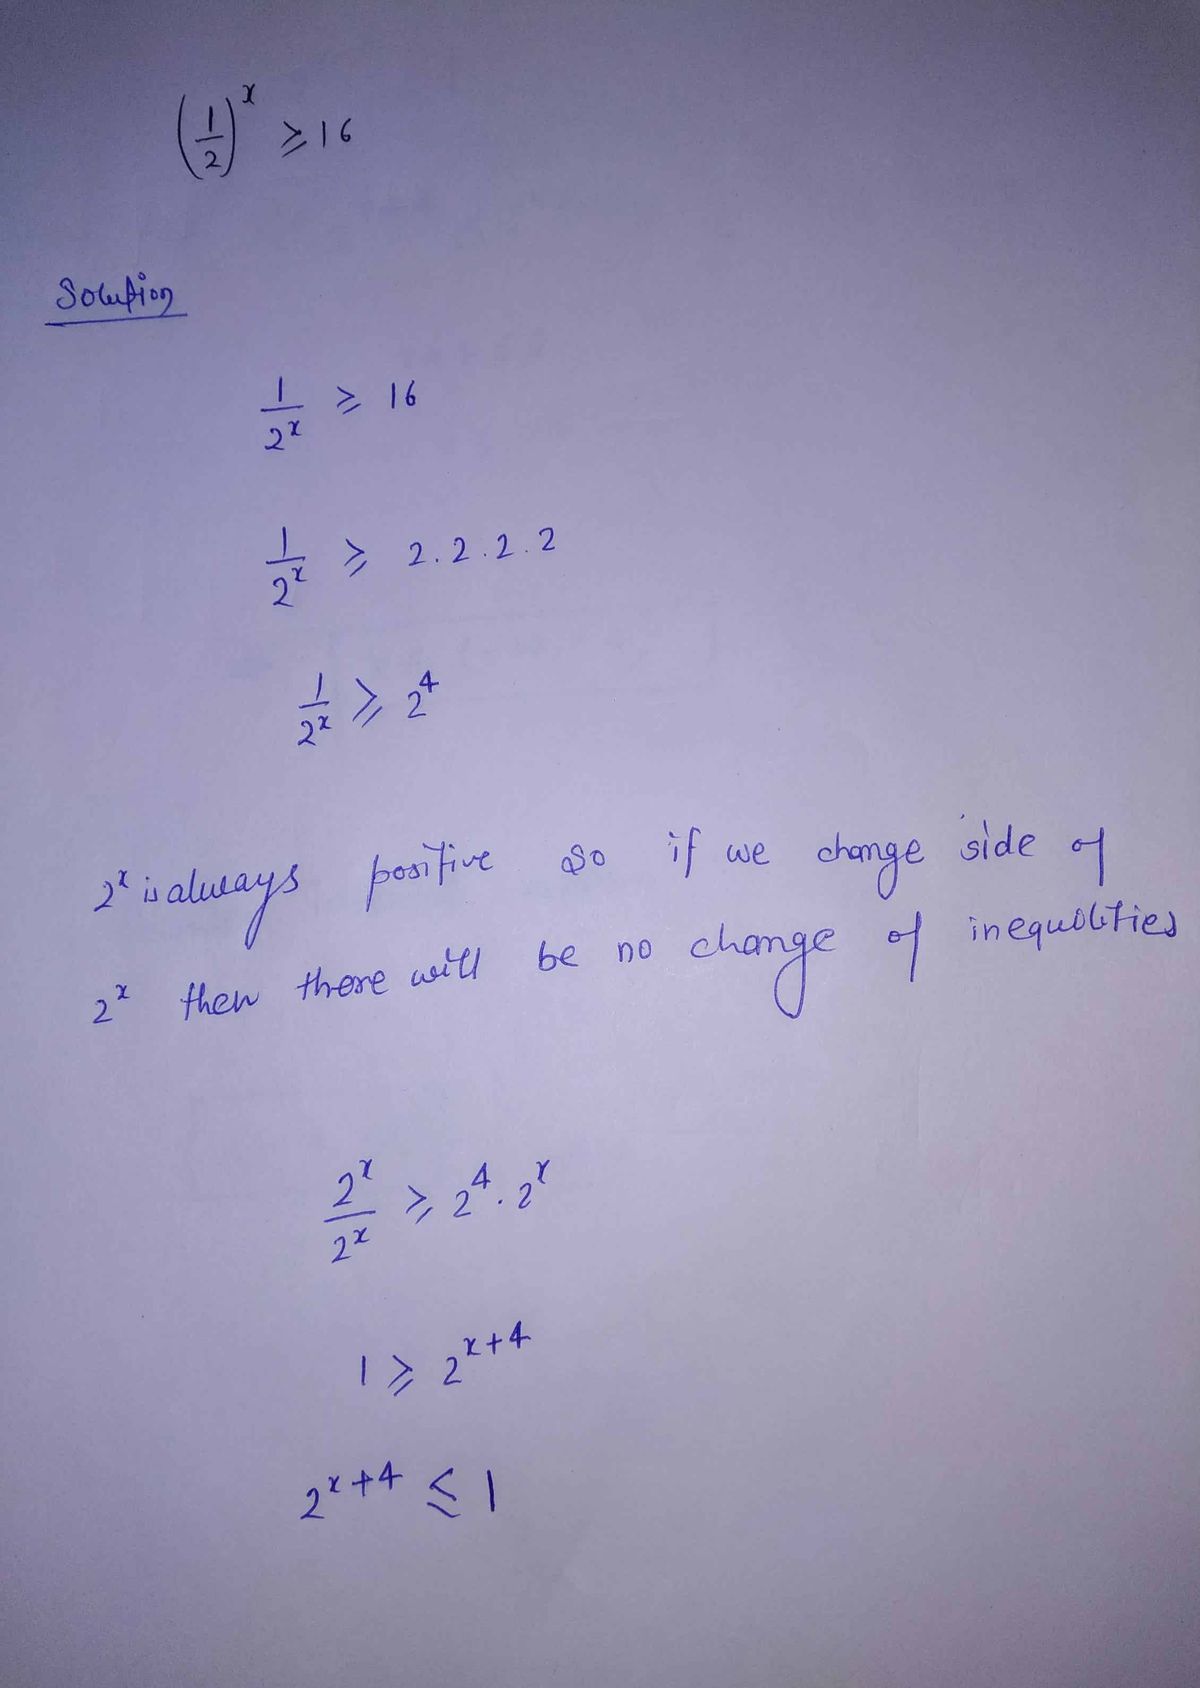 (1/2)^x ⩾ 16
Solution
1/2^x ⩾ 16
1/2^x ⩾ 2.2.2.2
1/2^x ⩾ 2^4
2^x is always positive so if we change side of
2^x then there will be no change of inequalities
2^x/2^x ⩾ 2^4 . 2^x
1 ⩾ 2^x+4
2^x+4 ≤ 1